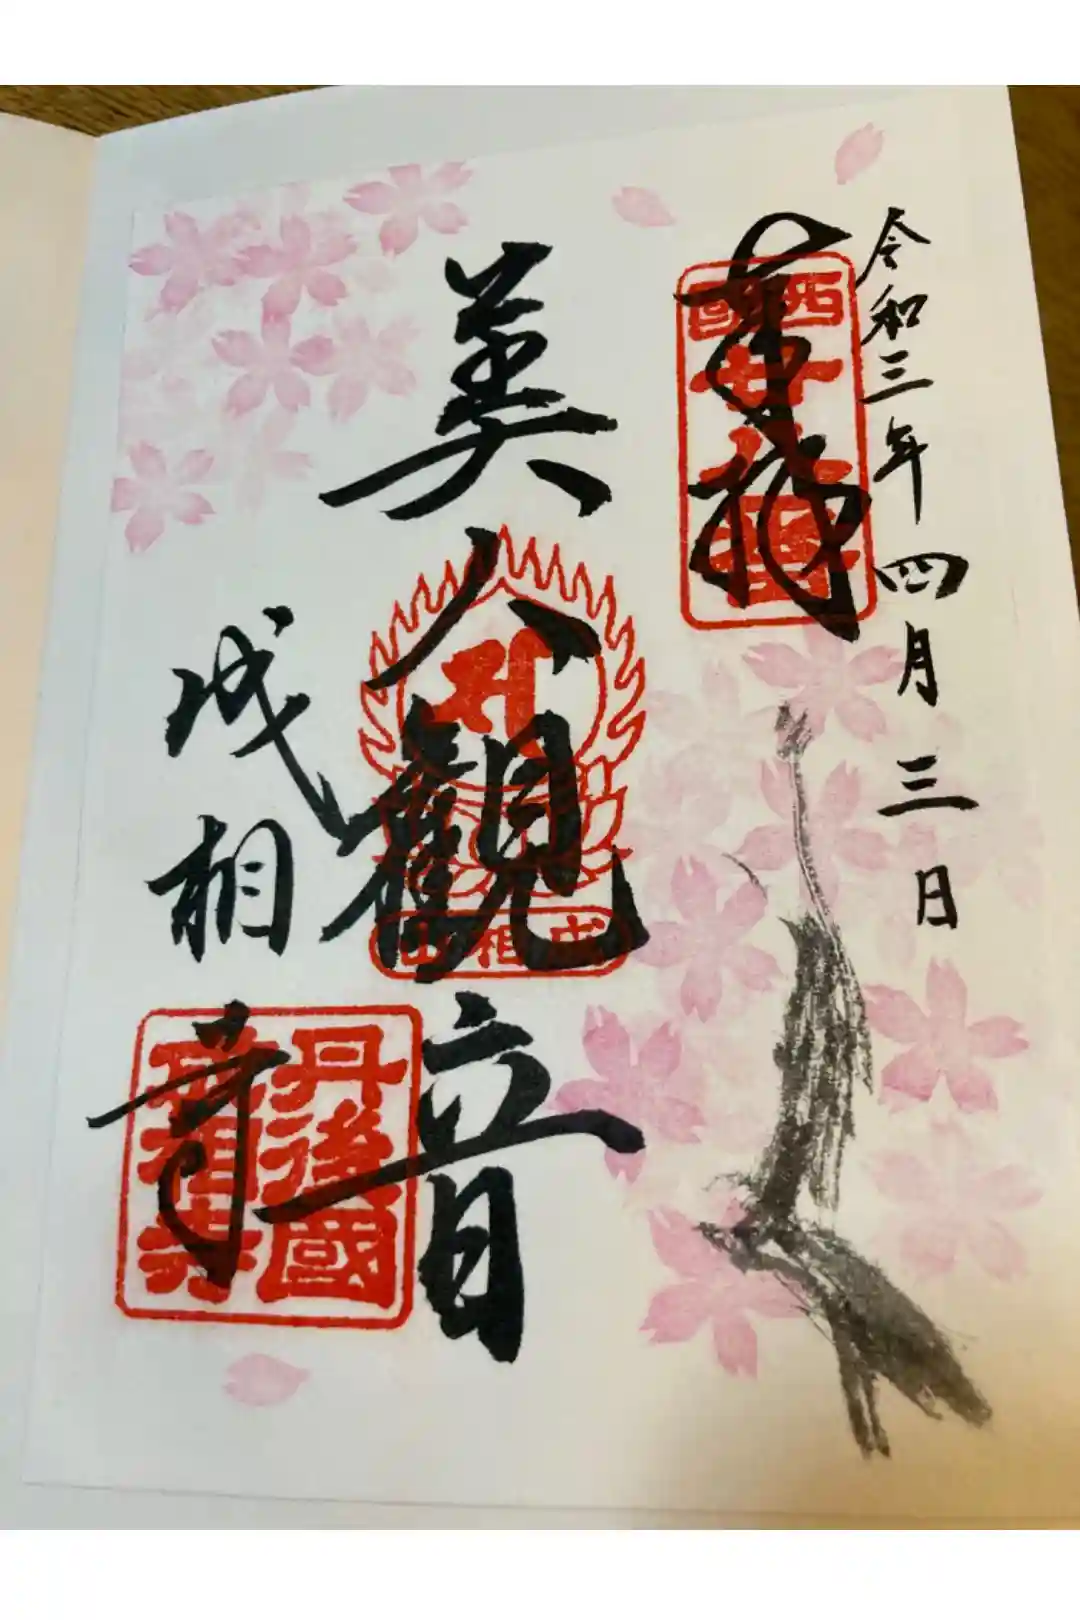 令和三年四月三日
奉拝
西國廿八番
美人観音
成相山
成相寺
丹後國
成相寺